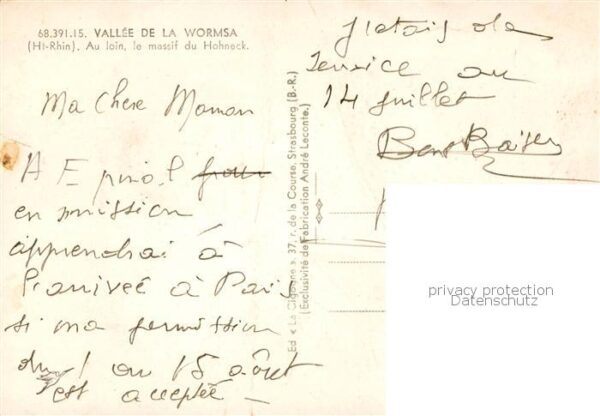 68.391.15. VALLÉE DE LA WORMSA
(Ht-Rhin). Au loin, le massif du Hohneck.
Ma Chere Maman
A Epinal pour
en mission
apprendrai à
l'arrivée à Paris
si ma permission
du 1 au 15 août
est acceptée —
j'etais de
service au
14 Juillet
Bons Baisers
Ed « La Cigogne », 37, r. de la Course, Strasbourg (B.-R.)
(Exclusivité de Fabrication André Leconte.)
privacy protection
Datenschutz